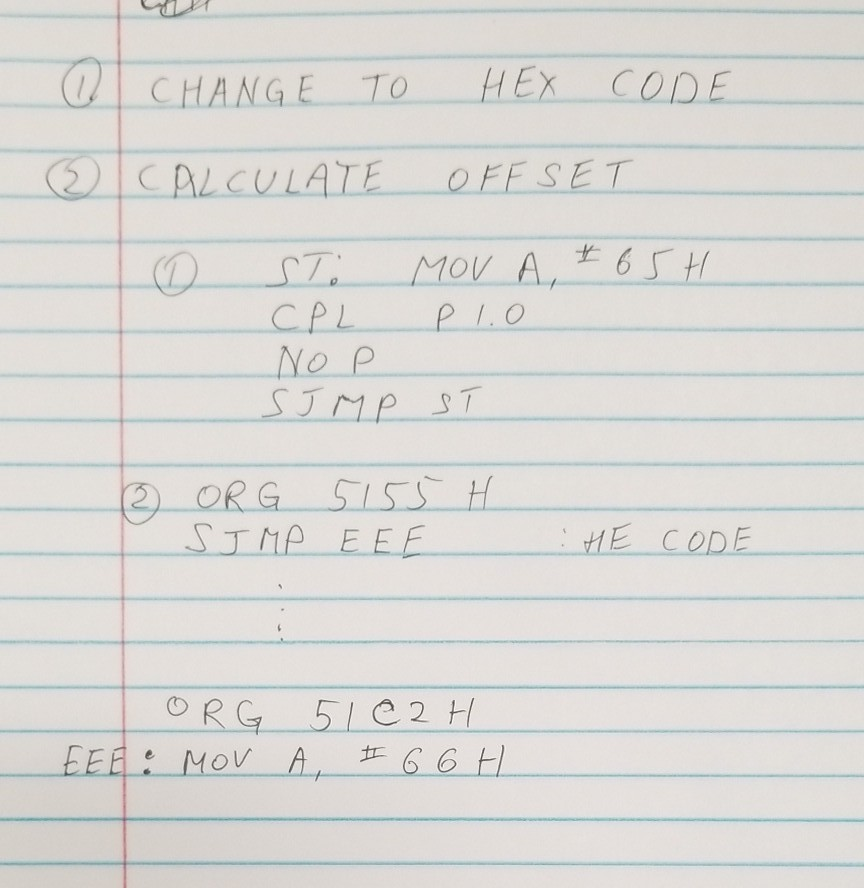 ① CHANGE TO HEX CODE
② CALCULATE OFFSET
① ST: MOV A, #65H
CPL P1.0
NOP
SJMP ST
② ORG 5155H
SJMP EEE : HE CODE
⋮
ORG 51C2H
EEE: MOV A, #66H